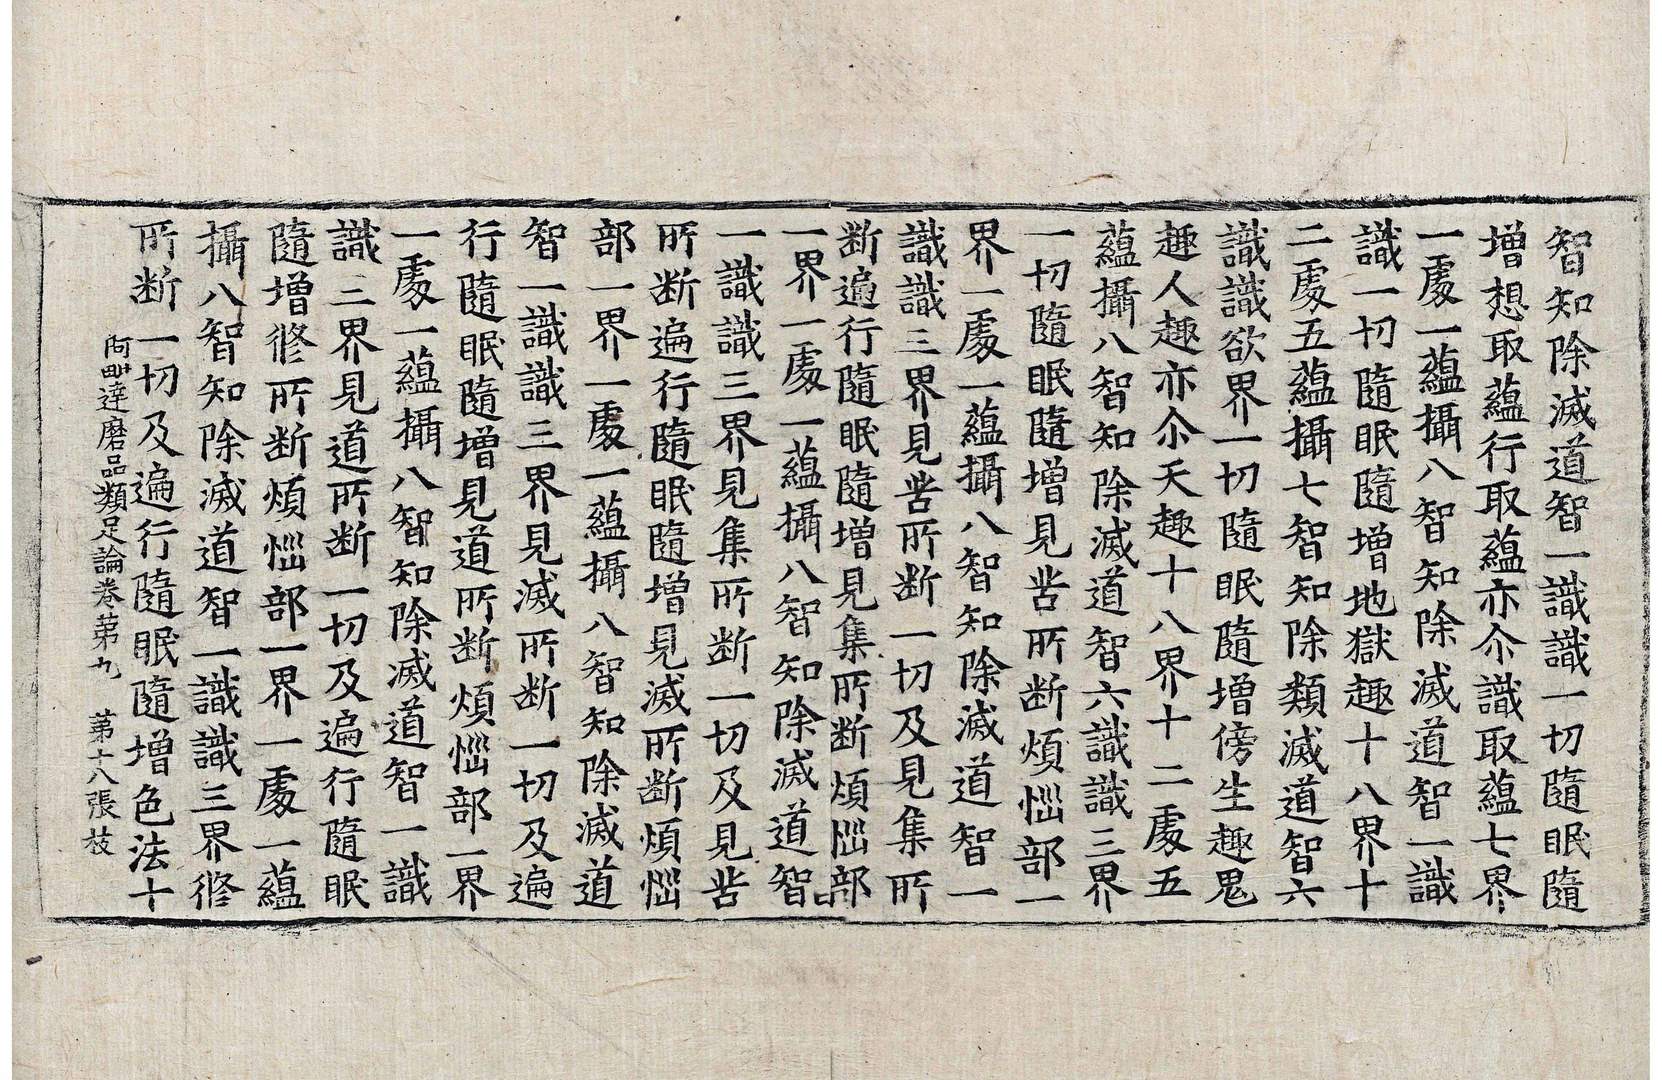 智知除滅道智一識識一切隨眠隨
增想取蘊行取蘊亦尒識取蘊七界
一處一蘊攝八智知除滅道智一識
識一切隨眠隨增地獄趣十八界十
二處五蘊攝七智知除類滅道智六
識識欲界一切隨眠隨增傍生趣鬼
趣人趣亦尒天趣十八界十二處五
蘊攝八智知除滅道智六識識三界
一切隨眠隨增見苦所断煩惱部一
界一處一蘊攝八智知除滅道智一
識識三界見苦所断一切及見集所
断遍行隨眠隨增見集所断煩惱部
一界一處一蘊攝八智知除滅道智
一識識三界見集所断一切及見苦
所断遍行隨眠隨增見滅所断煩惱
部一界一處一蘊攝八智知除滅道
智一識識三界見滅所断一切及遍
行隨眠隨增見道所断煩惱部一界
一處一蘊攝八智知除滅道智一識
識三界見道所断一切及遍行隨眠
隨增修所断煩惱部一界一處一蘊
攝八智知除滅道智一識識三界修
所断一切及遍行隨眠隨增色法十
阿毗達磨品類足論卷第九 第十八張 枝